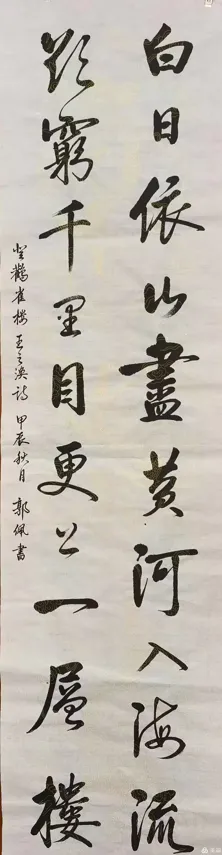 白日依山盡黃河入海流
欲窮千里目更上一層樓
登鸛雀樓 王之渙詩 甲辰秋月 郭佩書